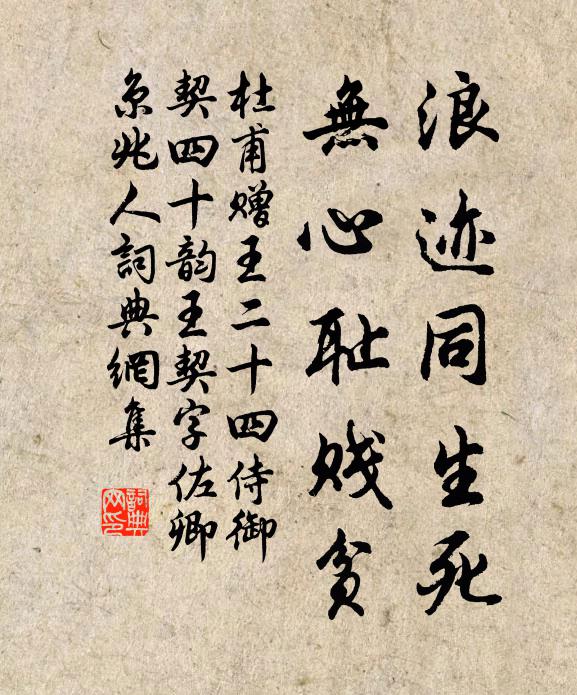 浪迹同生死
無心耻贱贫
杜甫赠王二十四侍御
契四十韵王契字佐卿
京兆人詞典網集
詞典
网印